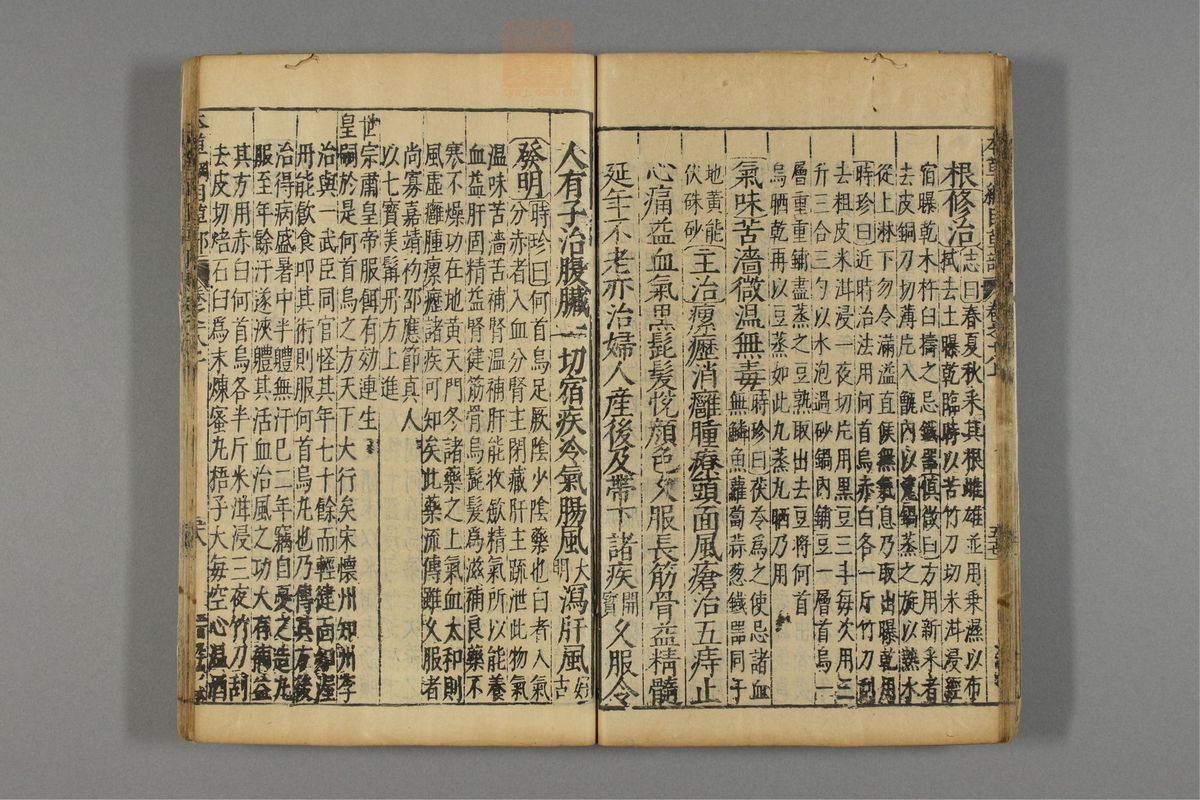 根修治志曰春夏秋采其根雌雄並用乘濕以布
拭去土曝乾臨時以苦竹刀切米泔浸經
宿曝乾木杵臼擣之忌鐵器慎微曰方用新采者
去皮銅刀切薄片入甑內以瓷鍋蒸之旋以熱水
從上淋下勿令滿溢直候無氣息乃取出曝乾用
時珍曰近時治法用何首烏赤白各一斤竹刀刮
去粗皮米泔浸一夜切片用黑豆三斗每次用三
升三合三勺以水泡過砂鍋內鋪豆一層首烏一
層重重鋪盡蒸之豆熟取出去豆將何首
烏晒乾再以豆蒸如此九蒸九晒乃用
氣味苦濇微温無毒時珍曰茯苓爲之使忌諸血
無鱗魚蘿蔔蒜葱鐵器同于
地黄能
伏硃砂主治瘰癧消癰腫療頭面風瘡治五痔止
心痛益血氣黑髭髮悅顔色久服長筋骨益精髓
延年不老亦治婦人産後及帶下諸疾開寶久服令
人有子治腹臟一切宿疾冷氣腸風大明瀉肝風好古
發明時珍曰何首烏足厥陰少陰藥也白者入氣
分赤者入血分腎主閉藏肝主疏泄此物氣
温味苦濇苦補腎温補肝能收斂精氣所以能養
血益肝固精益腎健筋骨烏髭髮爲滋補良藥不
寒不燥功在地黄天門冬諸藥之上氣血太和則
風虛癰腫瘰癧諸疾可知矣此藥流傳雖久服者
尚寡嘉靖初邵應節真人
以七寶美髯丹方上進
世宗肅皇帝服餌有効連生
皇嗣於是何首烏之方天下大行矣宋懷州知州李
治與一武臣同官怪其年七十餘而輕健面如渥
丹能飲食叩其術則服何首烏丸也乃傳其方後
治得病盛暑中半體無汗已二年竊自憂之造丸
服至年餘汗遂浹體其活血治風之功大有補益
其方用赤白何首烏各半斤米泔浸三夜竹刀刮
去皮切焙石臼爲末煉蜜丸梧子大每空心温酒